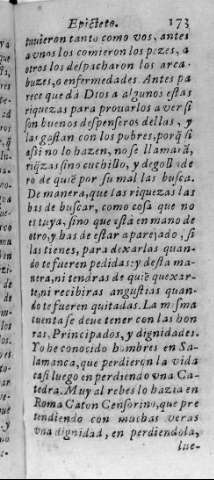 Epicteto. 173
tuuieron tanto como vos, antes
a vnos los comieron los pezes, a
otros los despacharon los arca-
buzes, o enfermedades. Antes pa
rece que dà Dios a algunos estas
riquezas para prouarlos a ver si
son buenos despenseros dellas, y
las gastan con los pobres, porq̃ si
assi no lo hazen, no se llamarã
riq̃zas sino cuchillo, y degollade
ro de quiẽ por su mal las busca.
De manera, que las riquezas las
has de buscar, como cosa que no
es tuya, sino que està en mano de
otro, y has de estar aparejado, si
las tienes, para dexarlas quan-
do te fueren pedidas: y desta ma
nera, ni tendras de quiẽ quexar-
te, ni recibiras angustias quan-
do te fueren quitadas. La misma
cuenta se deue tener con las hon
ras, Principados, y dignidades.
Yo he conocido hombres en Sa-
lamanca, que perdieron la vida
casi luego en perdiendo vna Ca-
tedra. Muy al rebes lo hazia en
Roma Caton Censorino, que pre
tendiendo con muchas veras
vna dignidad, en perdiendola,
lue-